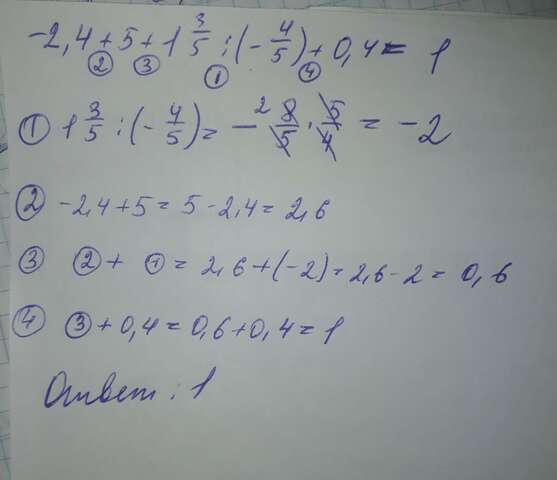 -2,4 + 5 + 1 3/5 : (- 4/5) + 0,4 = 1
② ③ ① ④
① 1 3/5 : (- 4/5) = - 2 8/5 · 5/4 = -2
② -2,4 + 5 = 5 - 2,4 = 2,6
③ ② + ① = 2,6 + (-2) = 2,6 - 2 = 0,6
④ ③ + 0,4 = 0,6 + 0,4 = 1
Ответ : 1